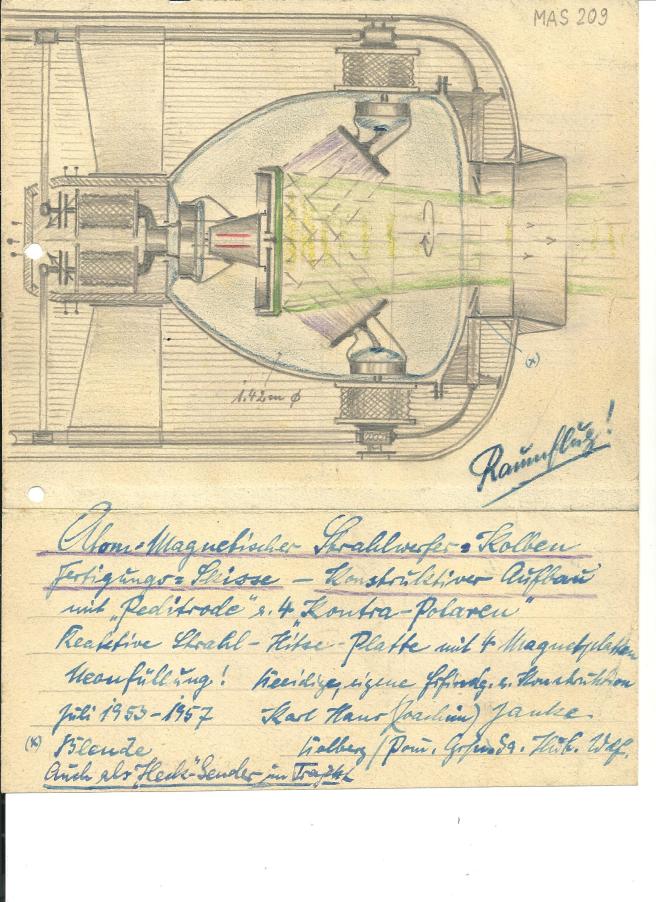 MAS 209
1.42 m ϕ
(x)
Raumflug!
Atom-Magnetischer Strahlwerfer-Kolben
Fertigungs-Skisse – Konstruktiver Aufbau
mit „Peditrode“ u. 4 „Kontra-Polaren“
Reaktive Strahl-Hitze-Platte mit 4 Magnetplatten
Neonfüllung! eigene Erfindg. u. Konstruktion
Juli 1953-1957 Karl Hans (Joachim) Janke
(x) Blende Kolberg / Pom.
Auch als „Heck“-Sender im Trajekt